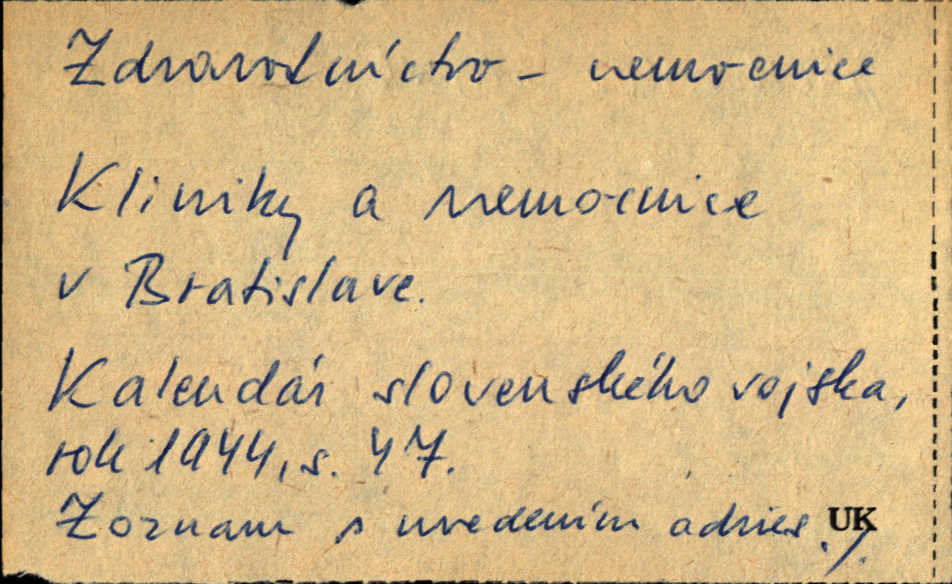 Zdravotníctvo – nemocnice
Kliniky a nemocnice
v Bratislave.
Kalendár slovenského vojska,
rok 1944, s. 47.
Zoznam s uvedením adries. UK